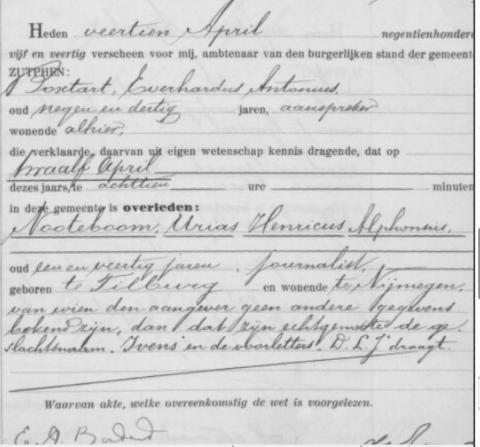 Heden veertien April negentienhonderd
vijf en veertig verscheen voor mij, ambtenaar van den burgerlijken stand der gemeente
ZUTPHEN:
Everhardus Antonius,
oud negen en dertig jaren, aanspreker
wonende alhier,
die verklaarde, daarvan uit eigen wetenschap kennis dragende, dat op
twaalf April
dezes jaars, te achttien ure minuten
in deze gemeente is overleden:
Nooteboom, Urias Henricus Alphonsus,
oud een en veertig jaren, journalist,
geboren te Tilburg en wonende te Nijmegen,
van wien den aangever geen andere gegevens
bekend zijn, dan dat zijn echtgenoote de ge-
slachtsnaam "Ivens" en de voorletters "D. L. J" draagt.
Waarvan akte, welke overeenkomstig de wet is voorgelezen.
E. A.